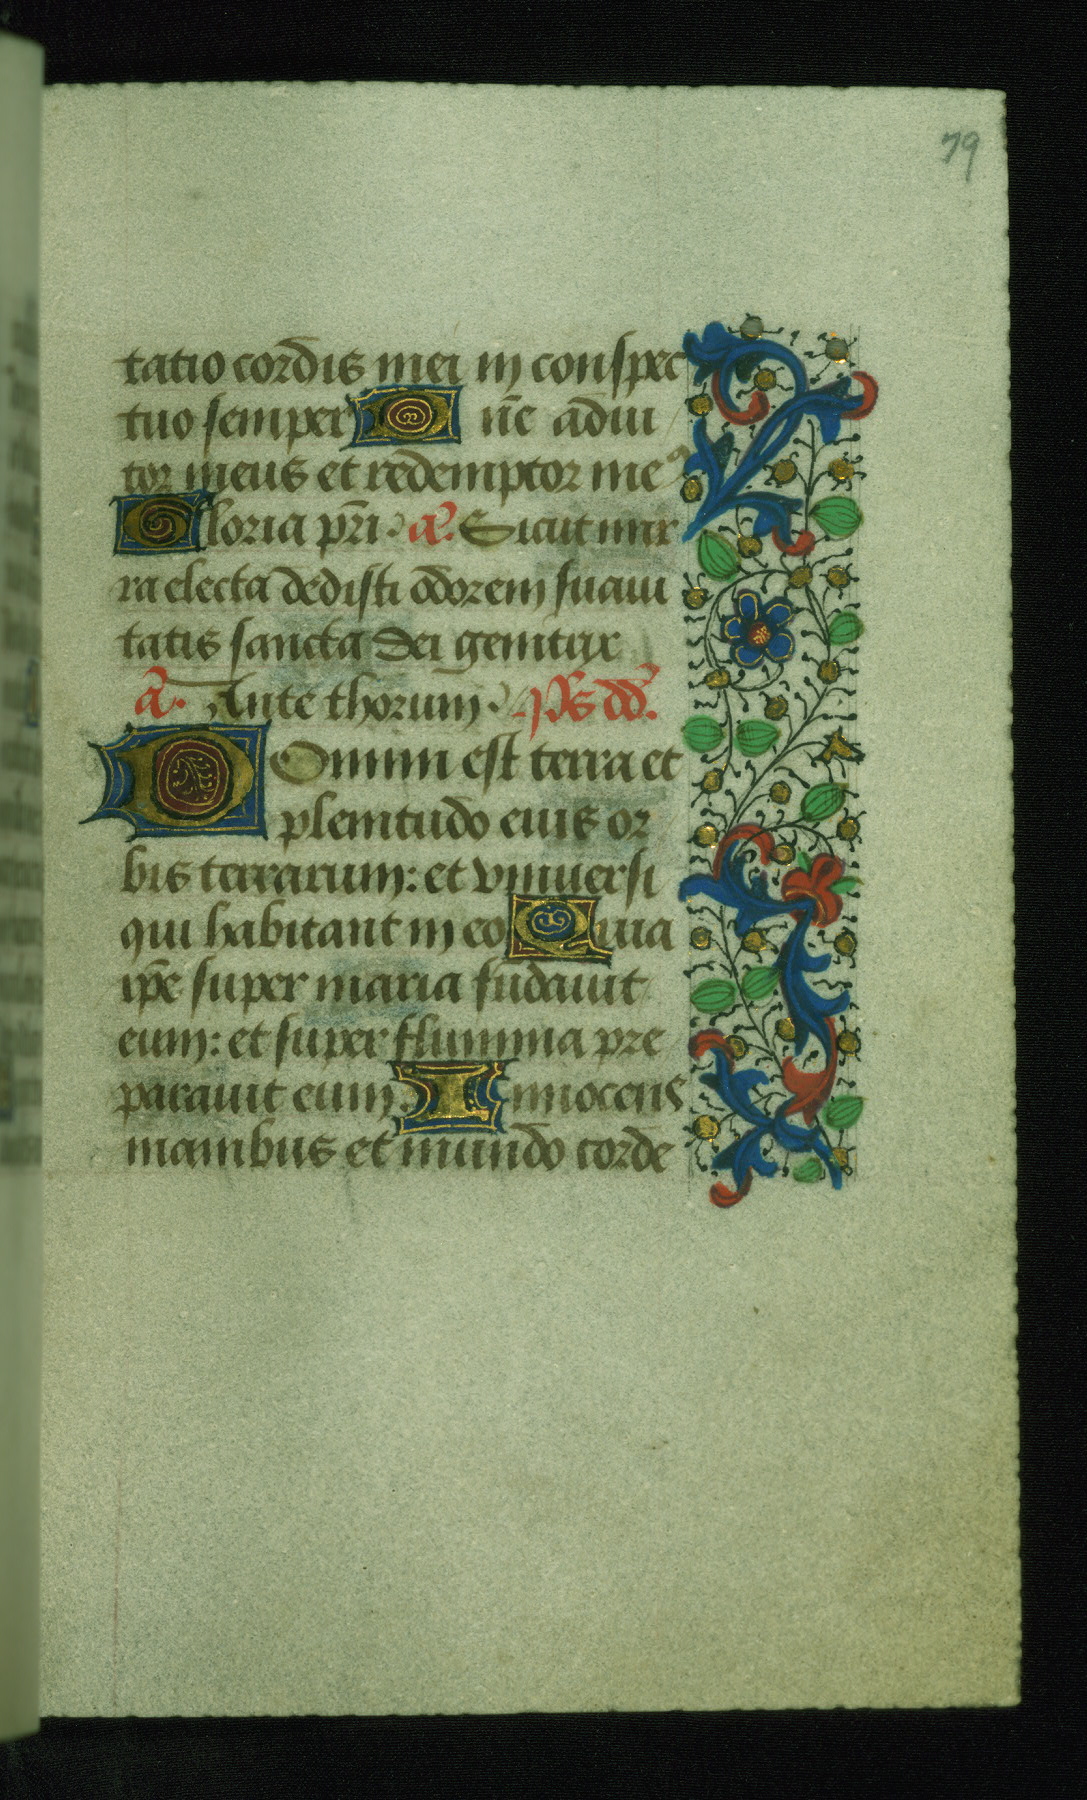 79
tatio cordis mei in conspec
tuo semper Dñe adiu
tor meus et redemptor me⁹
Gloria pr̃i. a᷃. Sicut mir
ra electa dedisti odorem suaui
tatis sancta dei genitrix
a᷃. Ante thorum. Ps̃ dd̃.
Domini est terra et
plenitudo eius or
bis terrarum: et vniuersi
qui habitant in eo Quia
ip̃e super maria fũdauit
eum: et super flumina pre
parauit eum. Innocens
manibus et mundo corde